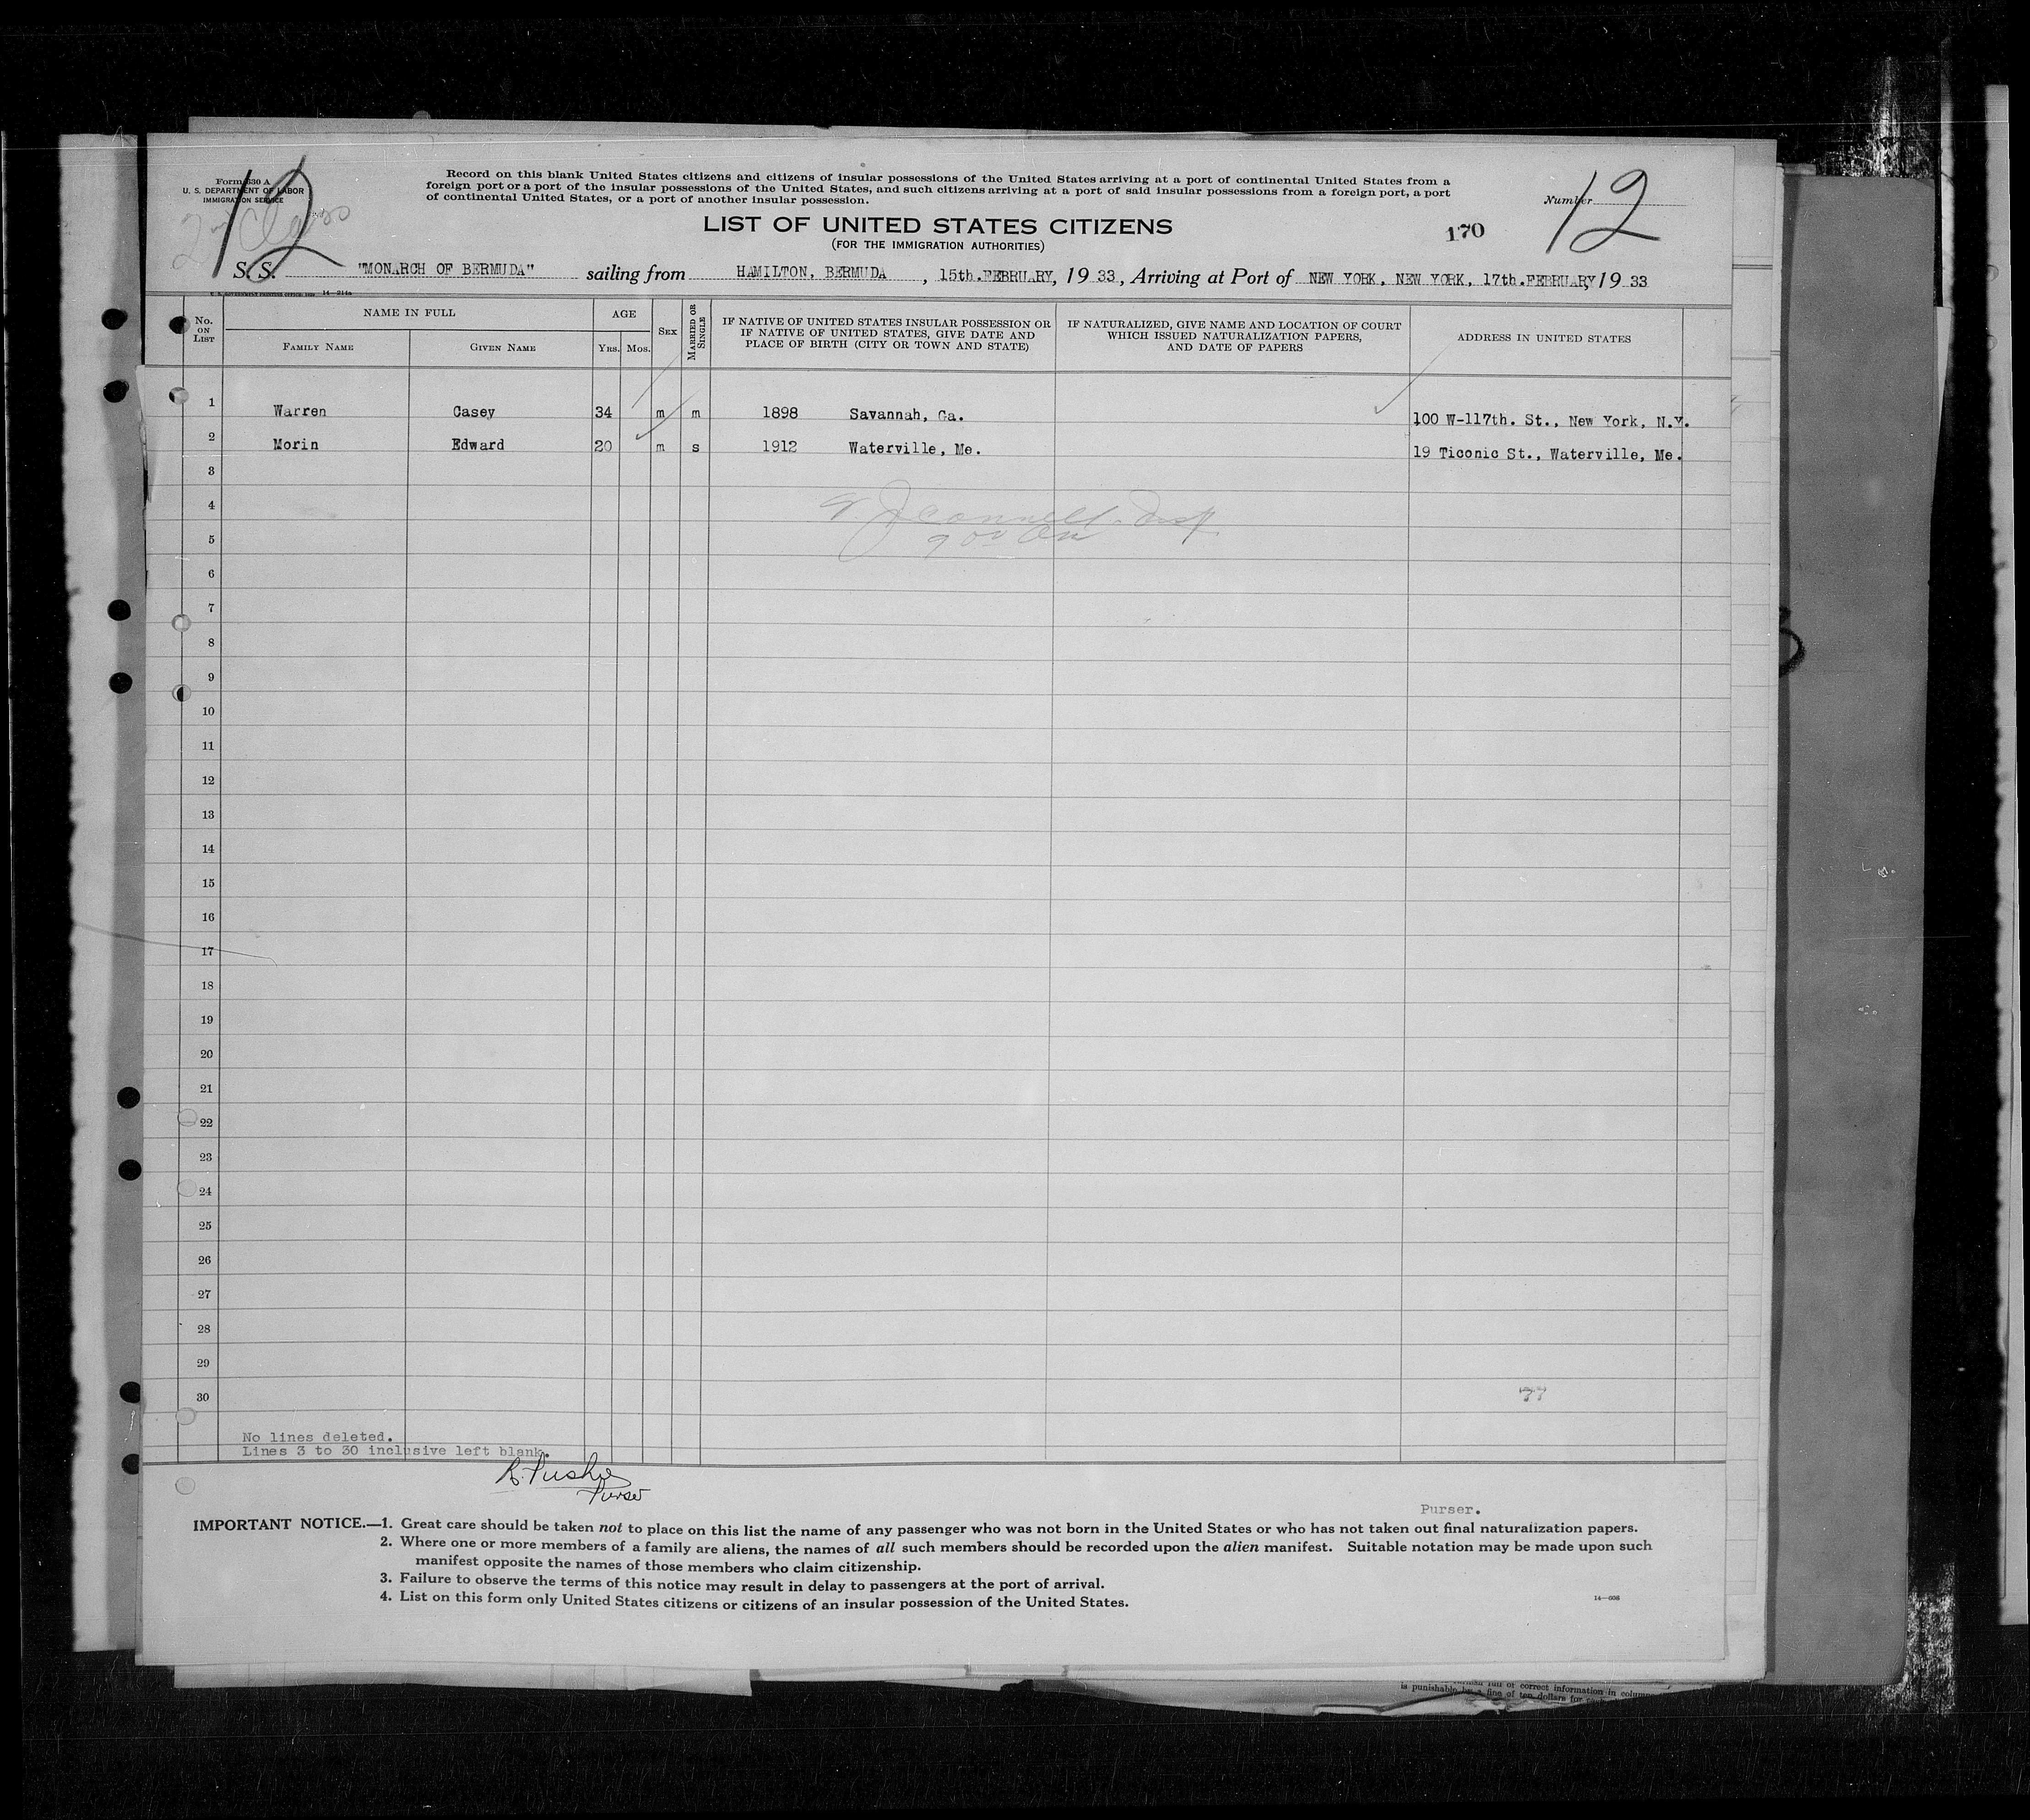 Form 630 A
U. S. DEPARTMENT OF LABOR
IMMIGRATION SERVICE
2nd Class
12
Record on this blank United States citizens and citizens of insular possessions of the United States arriving at a port of continental United States from a
foreign port or a port of the insular possessions of the United States, and such citizens arriving at a port of said insular possessions from a foreign port, a port
of continental United States, or a port of another insular possession.
Number 12
LIST OF UNITED STATES CITIZENS
(FOR THE IMMIGRATION AUTHORITIES)
170
S. S. "MONARCH OF BERMUDA" sailing from HAMILTON, BERMUDA, 15th.FEBRUARY, 1933, Arriving at Port of NEW YORK, NEW YORK, 17th.FEBRUARY, 1933
14—214a
No. ON LIST
NAME IN FULL
FAMILY NAME
GIVEN NAME
AGE
YRS. MOS.
SEX
MARRIED OR SINGLE
IF NATIVE OF UNITED STATES INSULAR POSSESSION OR
IF NATIVE OF UNITED STATES, GIVE DATE AND
PLACE OF BIRTH (CITY OR TOWN AND STATE)
IF NATURALIZED, GIVE NAME AND LOCATION OF COURT
WHICH ISSUED NATURALIZATION PAPERS,
AND DATE OF PAPERS
ADDRESS IN UNITED STATES
1 Warren Casey 34 m m 1898 Savannah, Ga. 100 W-117th. St., New York, N.Y.
2 Morin Edward 20 m s 1912 Waterville, Me. 19 Ticonic St., Waterville, Me.
3
4
5
6
7
8
9
10
11
12
13
14
15
16
17
18
19
20
21
22
23
24
25
26
27
28
29
30
77
No lines deleted.
Lines 3 to 30 inclusive left blank.
Purser
Purser.
IMPORTANT NOTICE.—1. Great care should be taken not to place on this list the name of any passenger who was not born in the United States or who has not taken out final naturalization papers.
2. Where one or more members of a family are aliens, the names of all such members should be recorded upon the alien manifest. Suitable notation may be made upon such
manifest opposite the names of those members who claim citizenship.
3. Failure to observe the terms of this notice may result in delay to passengers at the port of arrival.
4. List on this form only United States citizens or citizens of an insular possession of the United States.
14—606
full or correct information in colum
is punishable by a fine of ten dollars for